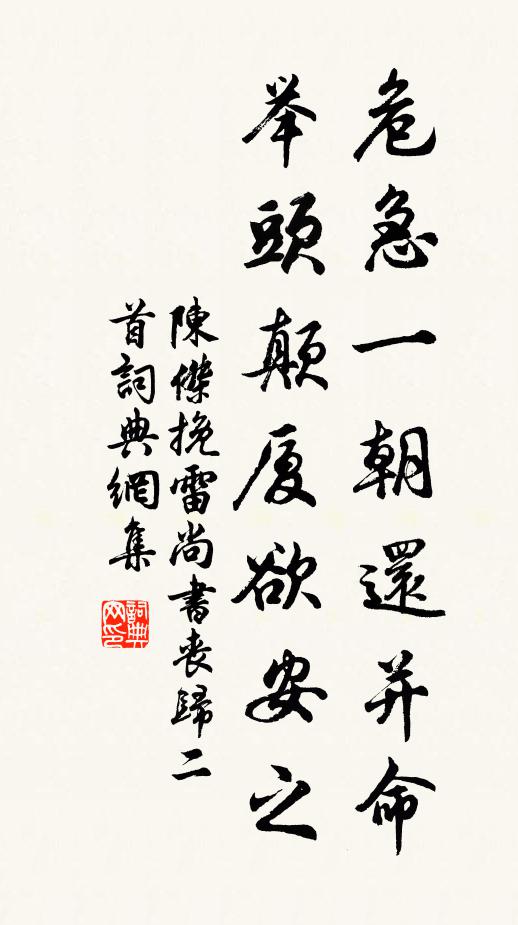 危急一朝還并命
举頭顛厦欲安之
陳傑挽雷尚書喪歸二
首詞典網集
詞典网印